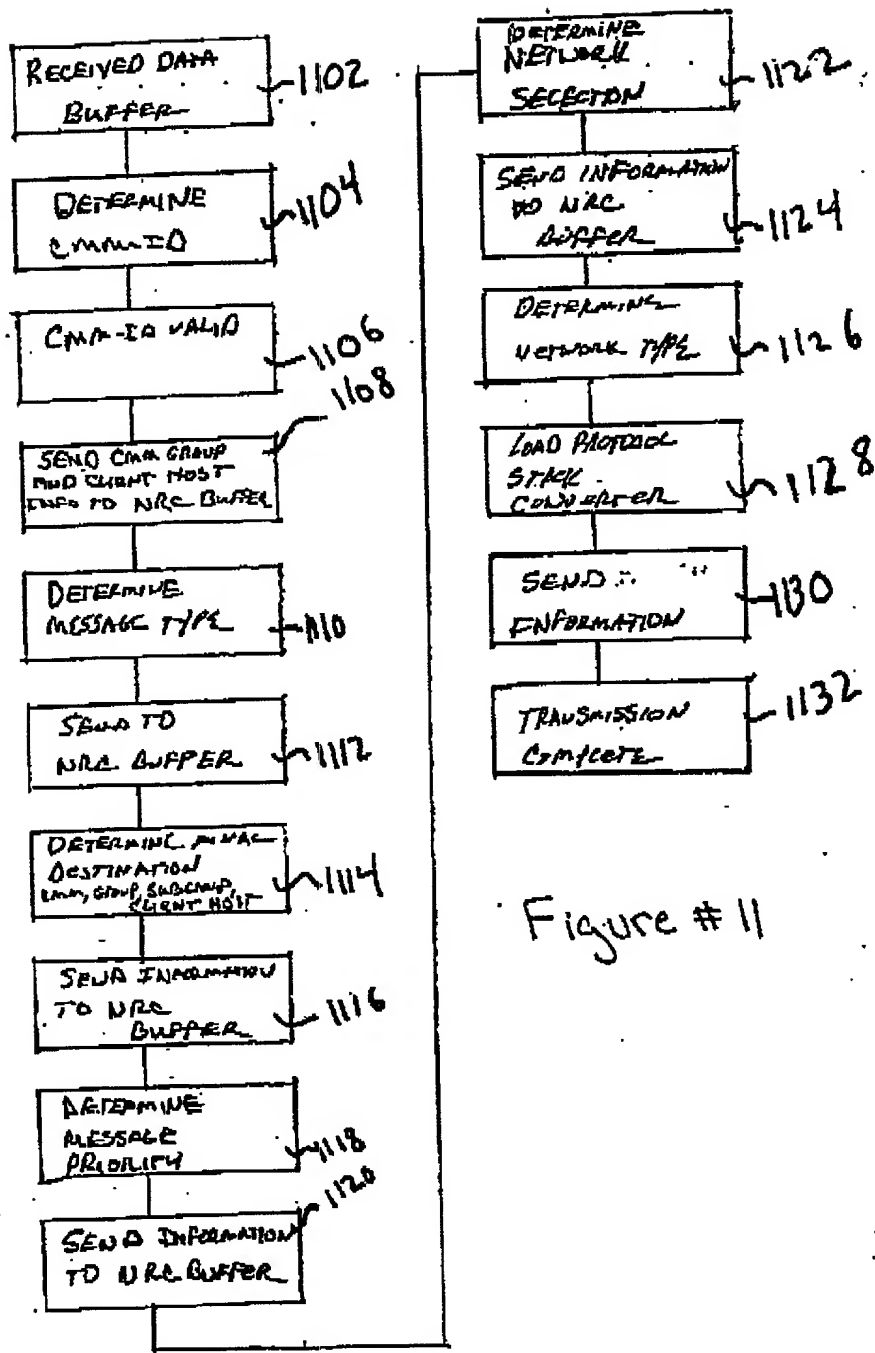 RECEIVED DATA
BUFFER
1102
DETERMINE
CMM-ID
1104
CMM-ID VALID
1106
1108
SEND CMM GROUP
AND CLIENT HOST
INFO TO NRC BUFFER
DETERMINE
MESSAGE TYPE
1110
SEND TO
NRC BUFFER
1112
DETERMINE FINAL
DESTINATION
CMM, GROUP, SUBGROUP,
CLIENT HOST
1114
SEND INFORMATION
TO NRC
BUFFER
1116
DETERMINE
MESSAGE
PRIORITY
1118
1120
SEND INFORMATION
TO NRC BUFFER
DETERMINE
NETWORK
SELECTION
1122
SEND INFORMATION
TO NRC
BUFFER
1124
DETERMINE
NETWORK TYPE
1126
LOAD PROTOCOL
STACK
CONVERTER
1128
SEND
INFORMATION
1130
TRANSMISSION
COMPLETE
1132
Figure # 11